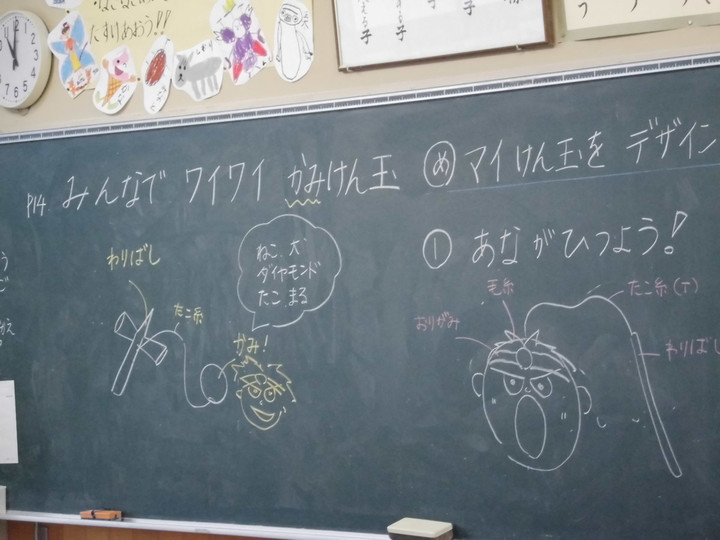 たすけあおう!!
P14 みんなで ワイワイ かみけん玉
め マイけん玉を デザイン
わりばし
たこ糸
ねこ 犬
ダイヤモンド
たこ まる
かみ!
① あながひつよう!
毛糸
おりがみ
たこ糸(T)
わりばし